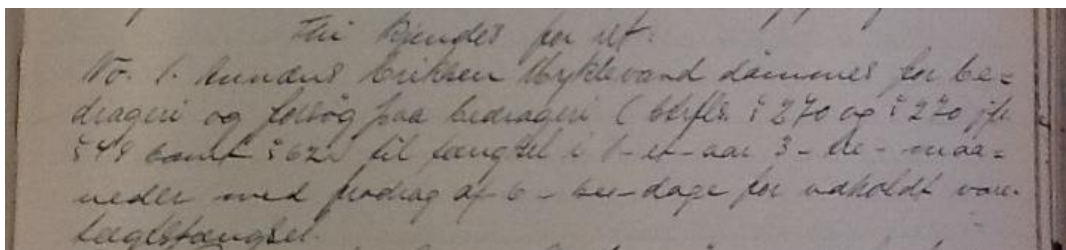 Thi kjendes for ret:
No. 1. Annæus Eriksen Myklevand dømmes for be=
drageri og forsøg paa bedrageri (strfls. § 270 og § 270 jfr.
§ 49 samt § 62) til fængsel i 1-et-aar 3-tre-maa=
neder med fradrag af 6-sex-dage for udholdt vare=
tægtsfængsel.